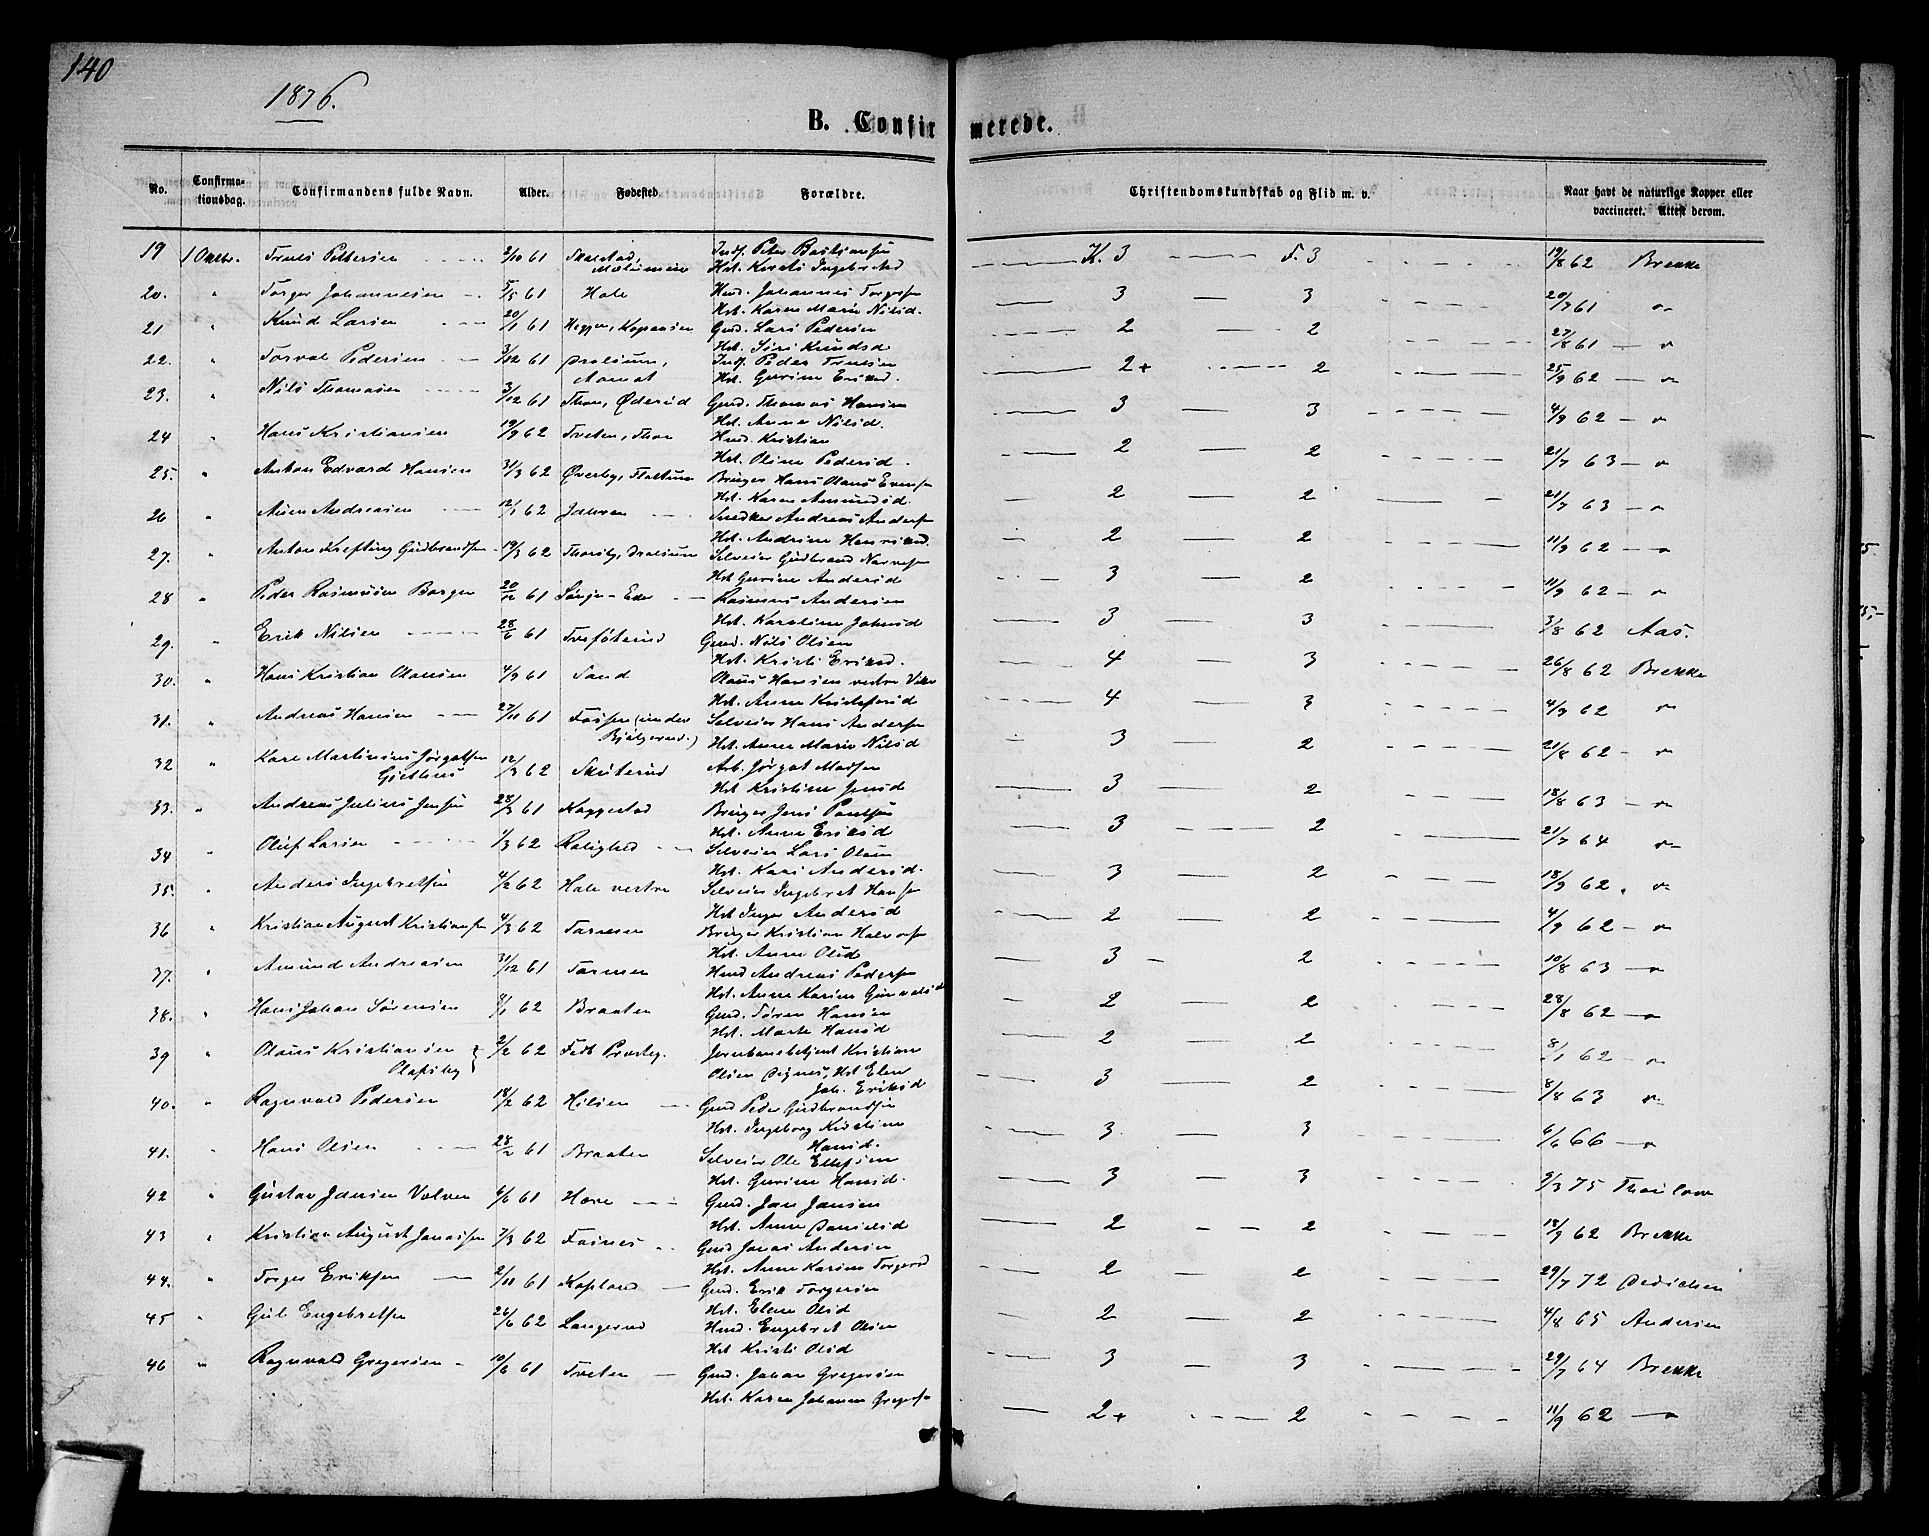 140
1876.
B. Confirmerede.
No.
Confirmationsdag.
Confirmandens fulde Navn.
Alder.
Fødested.
Forældre.
Christendomskundskab og Flid m. v.
Naar havt de naturlige Kopper eller vaccineret. Attest derom.
19 1 Octbr. 2/10 61 Indf. Peter Bastiansen K. 3 F. 3 19/8 62 Brekke
20. " Torger Johannesen 5/5 61 Hole Johannes 3 3 20/7 61 "
Hst. Karen Marie Nilsd.
21 " Knud Larsen 20/1 61 Gmd. Lars Pedersen 2 2 27/8 61 "
Hst. Siri Knudsd
22. " Torval Pedersen 3/12 61 Indf. Peder 2+ 2 25/9 62 "
Hst. Gurine Eriksd.
23. " Nils Thomasen 3/12 61 Thon, Øderud Gmd. Thomas Hansen 3 3 4/9 62 "
Hst. Anne Nilsd.
24 " Hans Kristiansen 19/9 62 Tveten, Thon Kristian 2 2 21/7 63 "
Hst. Oline Pedersd.
25. " Anton Edvard Hansen 31/3 62 Øverby, Bruger Hans Olaus 2 2 21/7 63 "
Hst. Karen Amundsd
26 " Andreasen 12/1 62 Snedker Andreas Andersen 2 2 11/9 62 "
Hst. Andrine Henriksd.
27. " Anton Krefting Gudbrandsen 19/3 62 Thorsby, Selveier Gudbrand 3 2 11/9 62 "
Hst Gurine Andersd
28 " Peder Rasmusen 20/12 61 Rasmus Andersen 3 3 3/8 62 Aas.
Hst. Karoline Johnsd
29. " Erik Nilsen 28/6 61 Gmd. Nils Olsen 4 3 26/8 62 Brekke
Hst. Kristi Eriksd.
30. " Hans Kristian Olausen 4/9 61 Sand Olaus Hansen vestre 4 3 4/9 62 "
Hst. Anne Kristofersd
31. " Andreas Hansen 27/11 61 Fossen (under Selveier Hans Andersen 3 2 21/8 62 "
Hst. Anne Marie Nilsd
32 " Karl Martinius 12/3 62 Skuterud Arb. Jørgat Madsen 3 2 18/8 63 "
Hst Kristine Jensd
33. " Andreas Julius Jensen 28/3 61 Kaggestad Bruger Jens Paulsen 3 2 21/7 64 "
Hst. Anne Eriksd
34 " Oluf Larsen 1/3 62 Selveier Lars Olsen 3 2 18/9 62. "
Hst. Kari Andersd.
35. " Anders Ingebretsen 4/2 62 Hole vestre Selveier Ingebret Hansen 2 2 4/9 62 "
Hst Inger Andersd
36 " Kristian August Kristiansen 4/3 62 Bruger Kristian Halvorsen 3 2 10/8 63 "
Hst. Anne Olsd
37. " Amund Andreasen 31/12 61 Andreas Pedersen 2 2 28/8 62 "
Hst. Anne Karine Gunvalsd
38. " Hans Johan Sørensen 8/1 62 Braaten Gmd. Søren Hansen 2 2 8/1 62 "
Hst. Marte Hansd
39 " Olaus Kristiansen 2/2 62 Jernbanebetjent Kristian 3 2 8/8 63 "
Olafsby Olsen Hst Elen
Joh. Eriksd
40. " Ragnvald Pedersen 18/2 62 Hilsen Gmd Peder Gudbrandsen 3 3 6/6 66 "
Hst. Ingeborg Kristine
Hansd.
41. " Hans Olsen 28/2 61 Braaten Selveier Ole Ellefsen 3 3 9/3 75 Thaulow
Hst. Gurine Hansd.
42 " Gustav Jansen 4/6 61 Gmd. Jan Jansen 2 2 18/9 62 Brekke
Hst. Anne Danielsd
43 " Kristian August Jonassen 7/3 62 Fosnes Gmd Jonas Andersen 2 2 29/7 72 Dedichen
Hst. Anne Karine Torgersd
44. " Torger Eriksen 2/11 61 Gmd. Erik Torgersen 2 2 4/8 65 Andersen
Hst. Elene Olsd
45 " Gul Engebretsen 26/6 62 Langerud Engebret Olsen 3 3 29/7 64 Brekke
Hst Kristi Olsd
46 " Ragnvald Gregersen 10/6 61 Tveten Gmd. Johan Gregersen 2+ 2 11/9 62 "
Hst. Karen Johanne